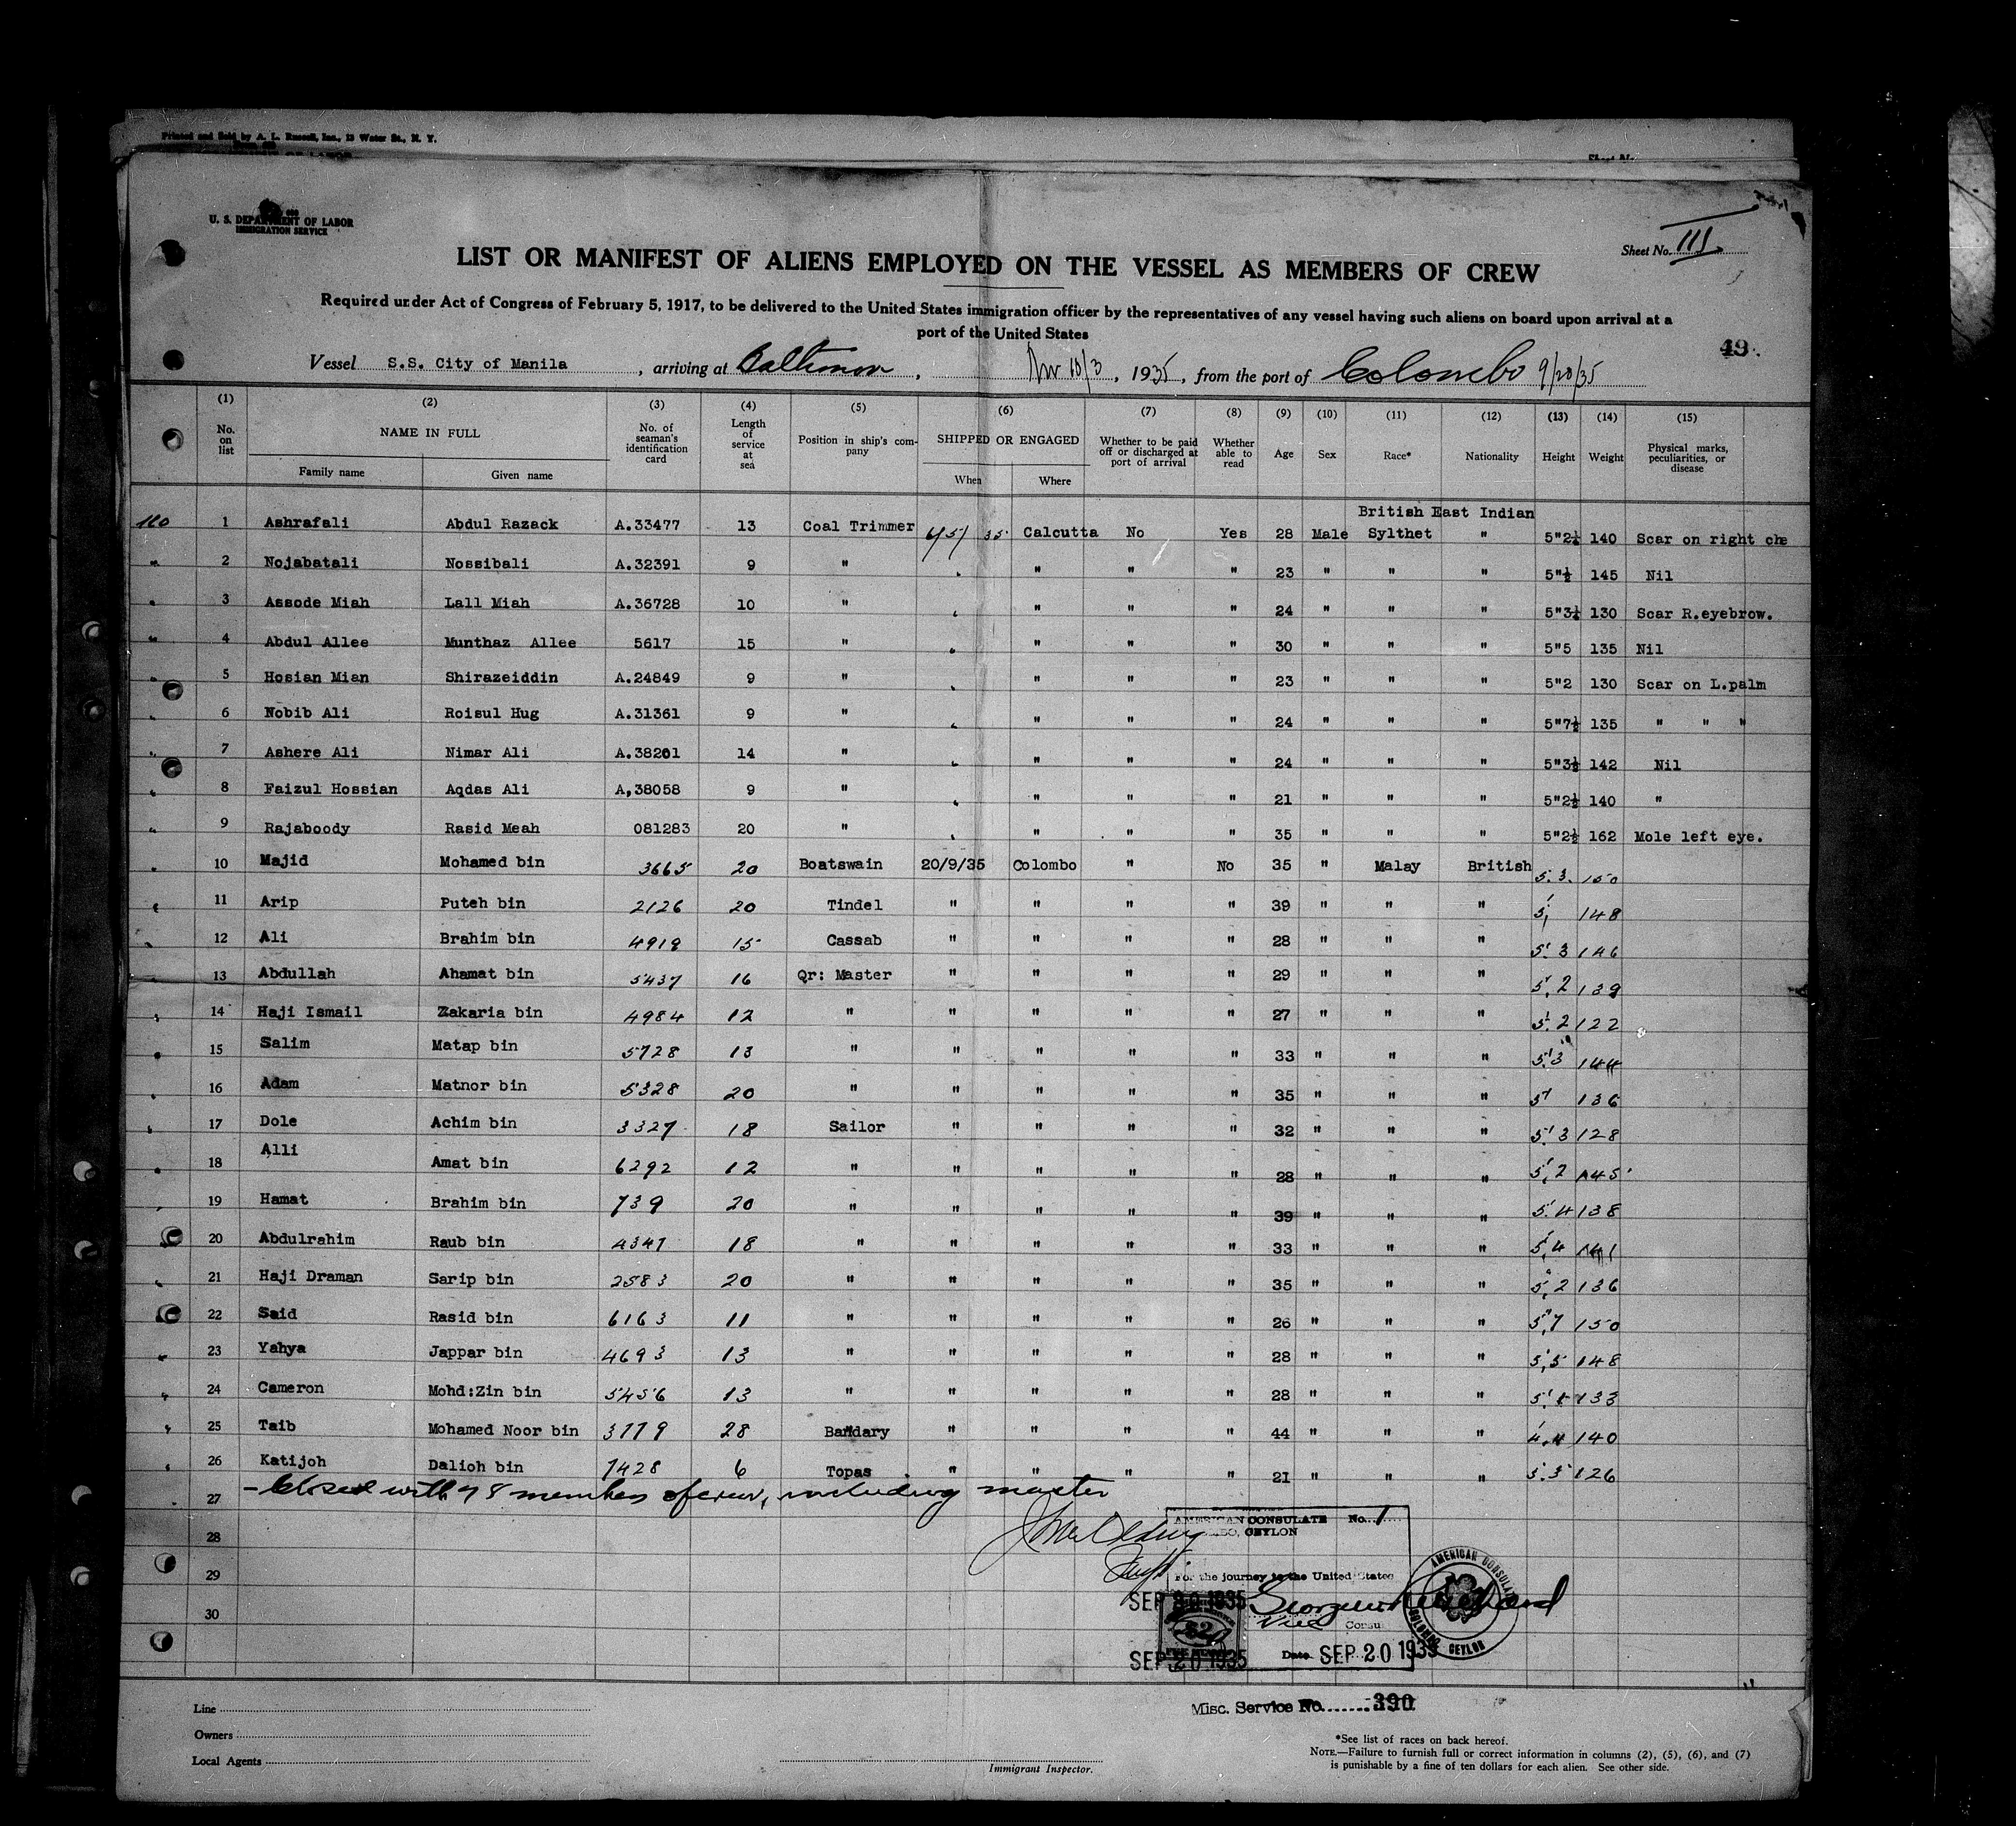 Printed and Sold by A. L. Russell, Inc., 13 Water St., N. Y.
Sheet No.
U. S. DEPARTMENT OF LABOR
IMMIGRATION SERVICE
Sheet No. III
LIST OR MANIFEST OF ALIENS EMPLOYED ON THE VESSEL AS MEMBERS OF CREW
Required under Act of Congress of February 5, 1917, to be delivered to the United States immigration officer by the representatives of any vessel having such aliens on board upon arrival at a
port of the United States
49
Vessel S.S. City of Manila, arriving at Baltimore, 10/3, 1935, from the port of Colombo 9/20/35
(1) (2) (3) (4) (5) (6) (7) (8) (9) (10) (11) (12) (13) (14) (15)
No. on list NAME IN FULL No. of seaman's identification card Length of service at sea Position in ship's company SHIPPED OR ENGAGED Whether to be paid off or discharged at port of arrival Whether able to read Age Sex Race* Nationality Height Weight Physical marks, peculiarities, or disease
Family name Given name When Where
British East Indian
1 Ashrafali Abdul Razack A.33477 13 Coal Trimmer 4/5/35 Calcutta No Yes 28 Male Sylthet " 5"2½ 140 Scar on right che
2 Nojabatali Nossibali A.32391 9 " " " " " 23 " " " 5"½ 145 Nil
3 Assode Miah Lall Miah A.36728 10 " " " " " 24 " " " 5"3½ 130 Scar R.eyebrow.
4 Abdul Allee Munthaz Allee 5617 15 " " " " " 30 " " " 5"5 135 Nil
5 Hosian Mian Shirazeiddin A.24849 9 " " " " " 23 " " " 5"2 130 Scar on L.palm
6 Nobib Ali Roisul Hug A.31361 9 " " " " " 24 " " " 5"7½ 135 " " "
7 Ashere Ali Nimar Ali A.38201 14 " " " " " 24 " " " 5"3½ 142 Nil
8 Faizul Hossian Aqdas Ali A,38058 9 " " " " " 21 " " " 5"2½ 140 "
9 Rajaboody Rasid Meah 081283 20 " " " " " 35 " " " 5"2½ 162 Mole left eye.
10 Majid Mohamed bin 3665 20 Boatswain 20/9/35 Colombo " No 35 " Malay British 5.3. 150
11 Arip Puteh bin 2126 20 Tindel " " " " 39 " " " 5' 148
12 Ali Brahim bin 4919 15 Cassab " " " " 28 " " " 5'.3 146
13 Abdullah Ahamat bin 5437 16 Qr: Master " " " " 29 " " " 5'.2 139
14 Haji Ismail Zakaria bin 4984 12 " " " " " 27 " " " 5'.2 122
15 Salim Matap bin 5728 13 " " " " " 33 " " " 5'.3 144
16 Adam Matnor bin 5328 20 " " " " " 35 " " " 5' 136
17 Dole Achim bin 3327 18 Sailor " " " " 32 " " " 5'.3 128
18 Alli Amat bin 6292 12 " " " " " 28 " " " 5'.2 145
19 Hamat Brahim bin 739 20 " " " " " 39 " " " 5.4 138
20 Abdulrahim Raub bin 4347 18 " " " " " 33 " " " 5'.4 141
21 Haji Draman Sarip bin 2583 20 " " " " " 35 " " " 5'.2 136
22 Said Rasid bin 6163 11 " " " " " 26 " " " 5'.7 150
23 Yahya Jappar bin 4693 13 " " " " " 28 " " " 5'.5 148
24 Cameron Mohd:Zin bin 5456 13 " " " " " 28 " " " 5'.1 133
25 Taib Mohamed Noor bin 3779 28 Bandary " " " " 44 " " " 140
26 Katijoh Dalioh bin 7428 6 Topas " " " " 21 " " " 5.5 126
27 - Closed with 78 members of crew, including master
28
29
30
AMERICAN CONSULATE No. 1
COLOMBO, CEYLON
For the journey to the United States
SEP 20 1935
Vice Consul
SEP 20 1935
Date SEP 20 1935
AMERICAN CONSULATE COLOMBO CEYLON
Misc. Service No. 390
Line
Owners
Local Agents
Immigrant Inspector.
*See list of races on back hereof.
NOTE.—Failure to furnish full or correct information in columns (2), (5), (6), and (7)
is punishable by a fine of ten dollars for each alien. See other side.